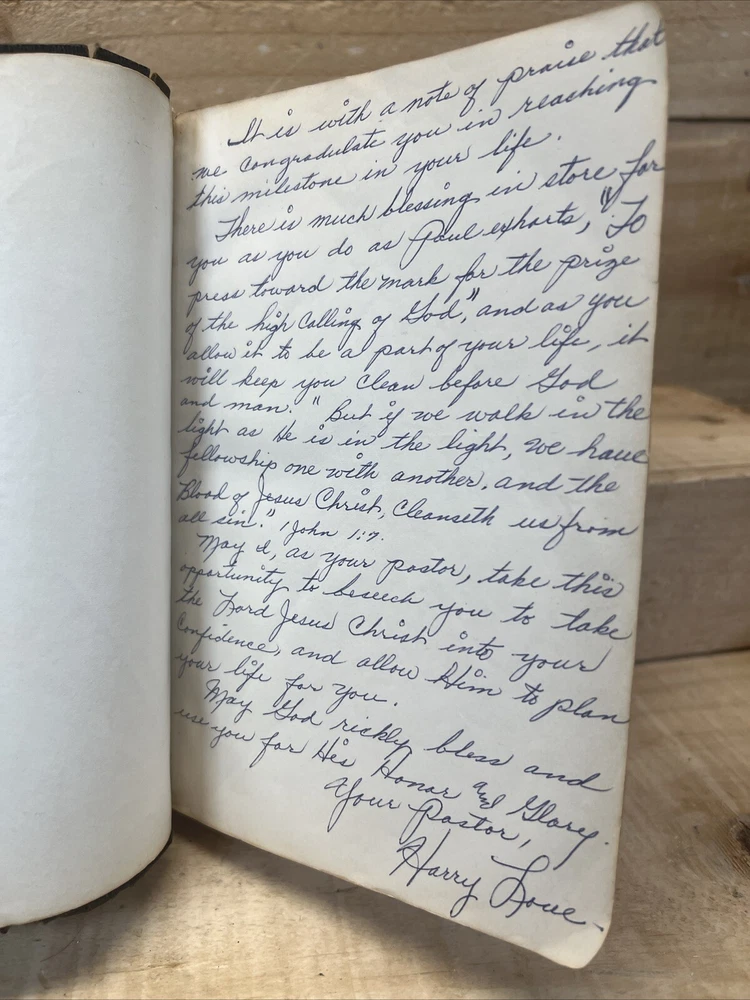 It is with a note of praise that
we congradulate you in reaching
this milestone in your life.
There is much blessing in store for
you as you do as Paul exhorts, "To
press toward the mark for the prize
of the high calling of God," and as you
allow it to be a part of your life, it
will keep you clean before God
and man. "But if we walk in the
light as He is in the light, we have
fellowship one with another, and the
Blood of Jesus Christ, cleanseth us from
all sin." 1 John 1:7.
May I, as your pastor, take this
opportunity to beseech you to take
the Lord Jesus Christ into your
confidence and allow Him to plan
your life for you.
May God richly bless and
use you for His Honor and Glory.
Your Pastor,
Harry Love